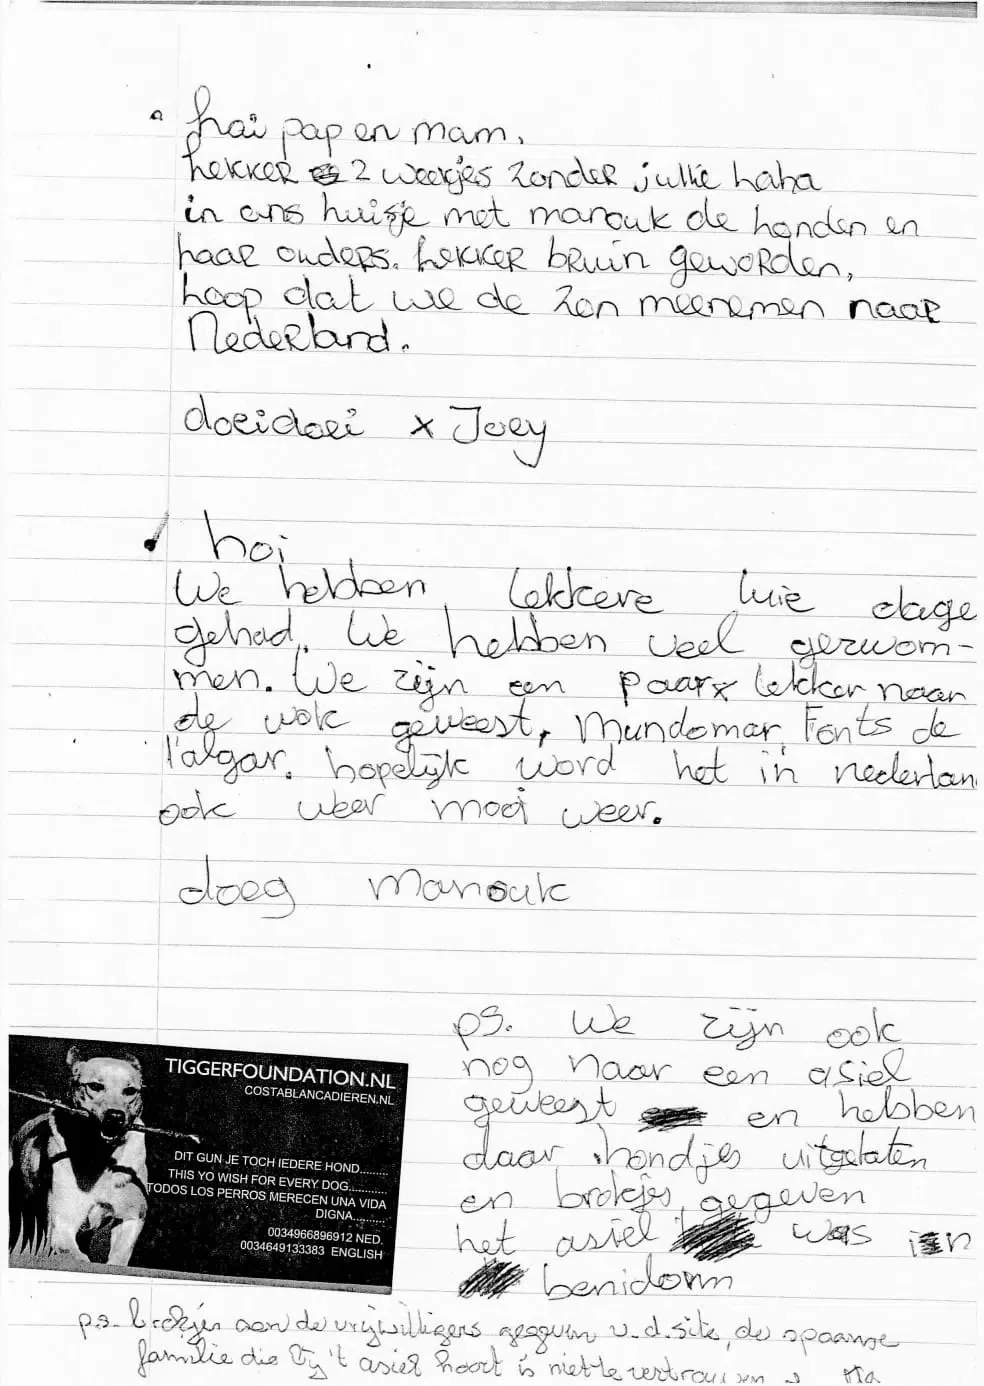 hai pap en mam.
hekker 2 weekjes zonder jullie haha
in ons huisje met manouk de honden en
haar ouders. hekker bruin geworden,
hoop dat we de zon meenemen naar
Nederland.
doeidoei x Joey
hoi
We hebben lekkere luie dage
gehad. We hebben veel gezwom-
men. We zijn een paar x lekker naar
de wok geweest, Mundomar, Fonts de
l'algar. hopelijk word het in nederlan
ook weer mooi weer.
doeg Manouk
ps. We zijn ook
nog naar een asiel
geweest en hebben
daar hondjes uitgelaten
en brokjes gegeven
het asiel was in
benidorm
TIGGERFOUNDATION.NL
COSTABLANCADIEREN.NL
DIT GUN JE TOCH IEDERE HOND.........
THIS YO WISH FOR EVERY DOG............
TODOS LOS PERROS MERECEN UNA VIDA
DIGNA..........
0034966896912 NED.
0034649133383 ENGLISH
ps. brokjes aan de vrijwilligers gegeven v.d. site, de spaanse
familie die bij 't asiel hoort is niet te vertrouwen